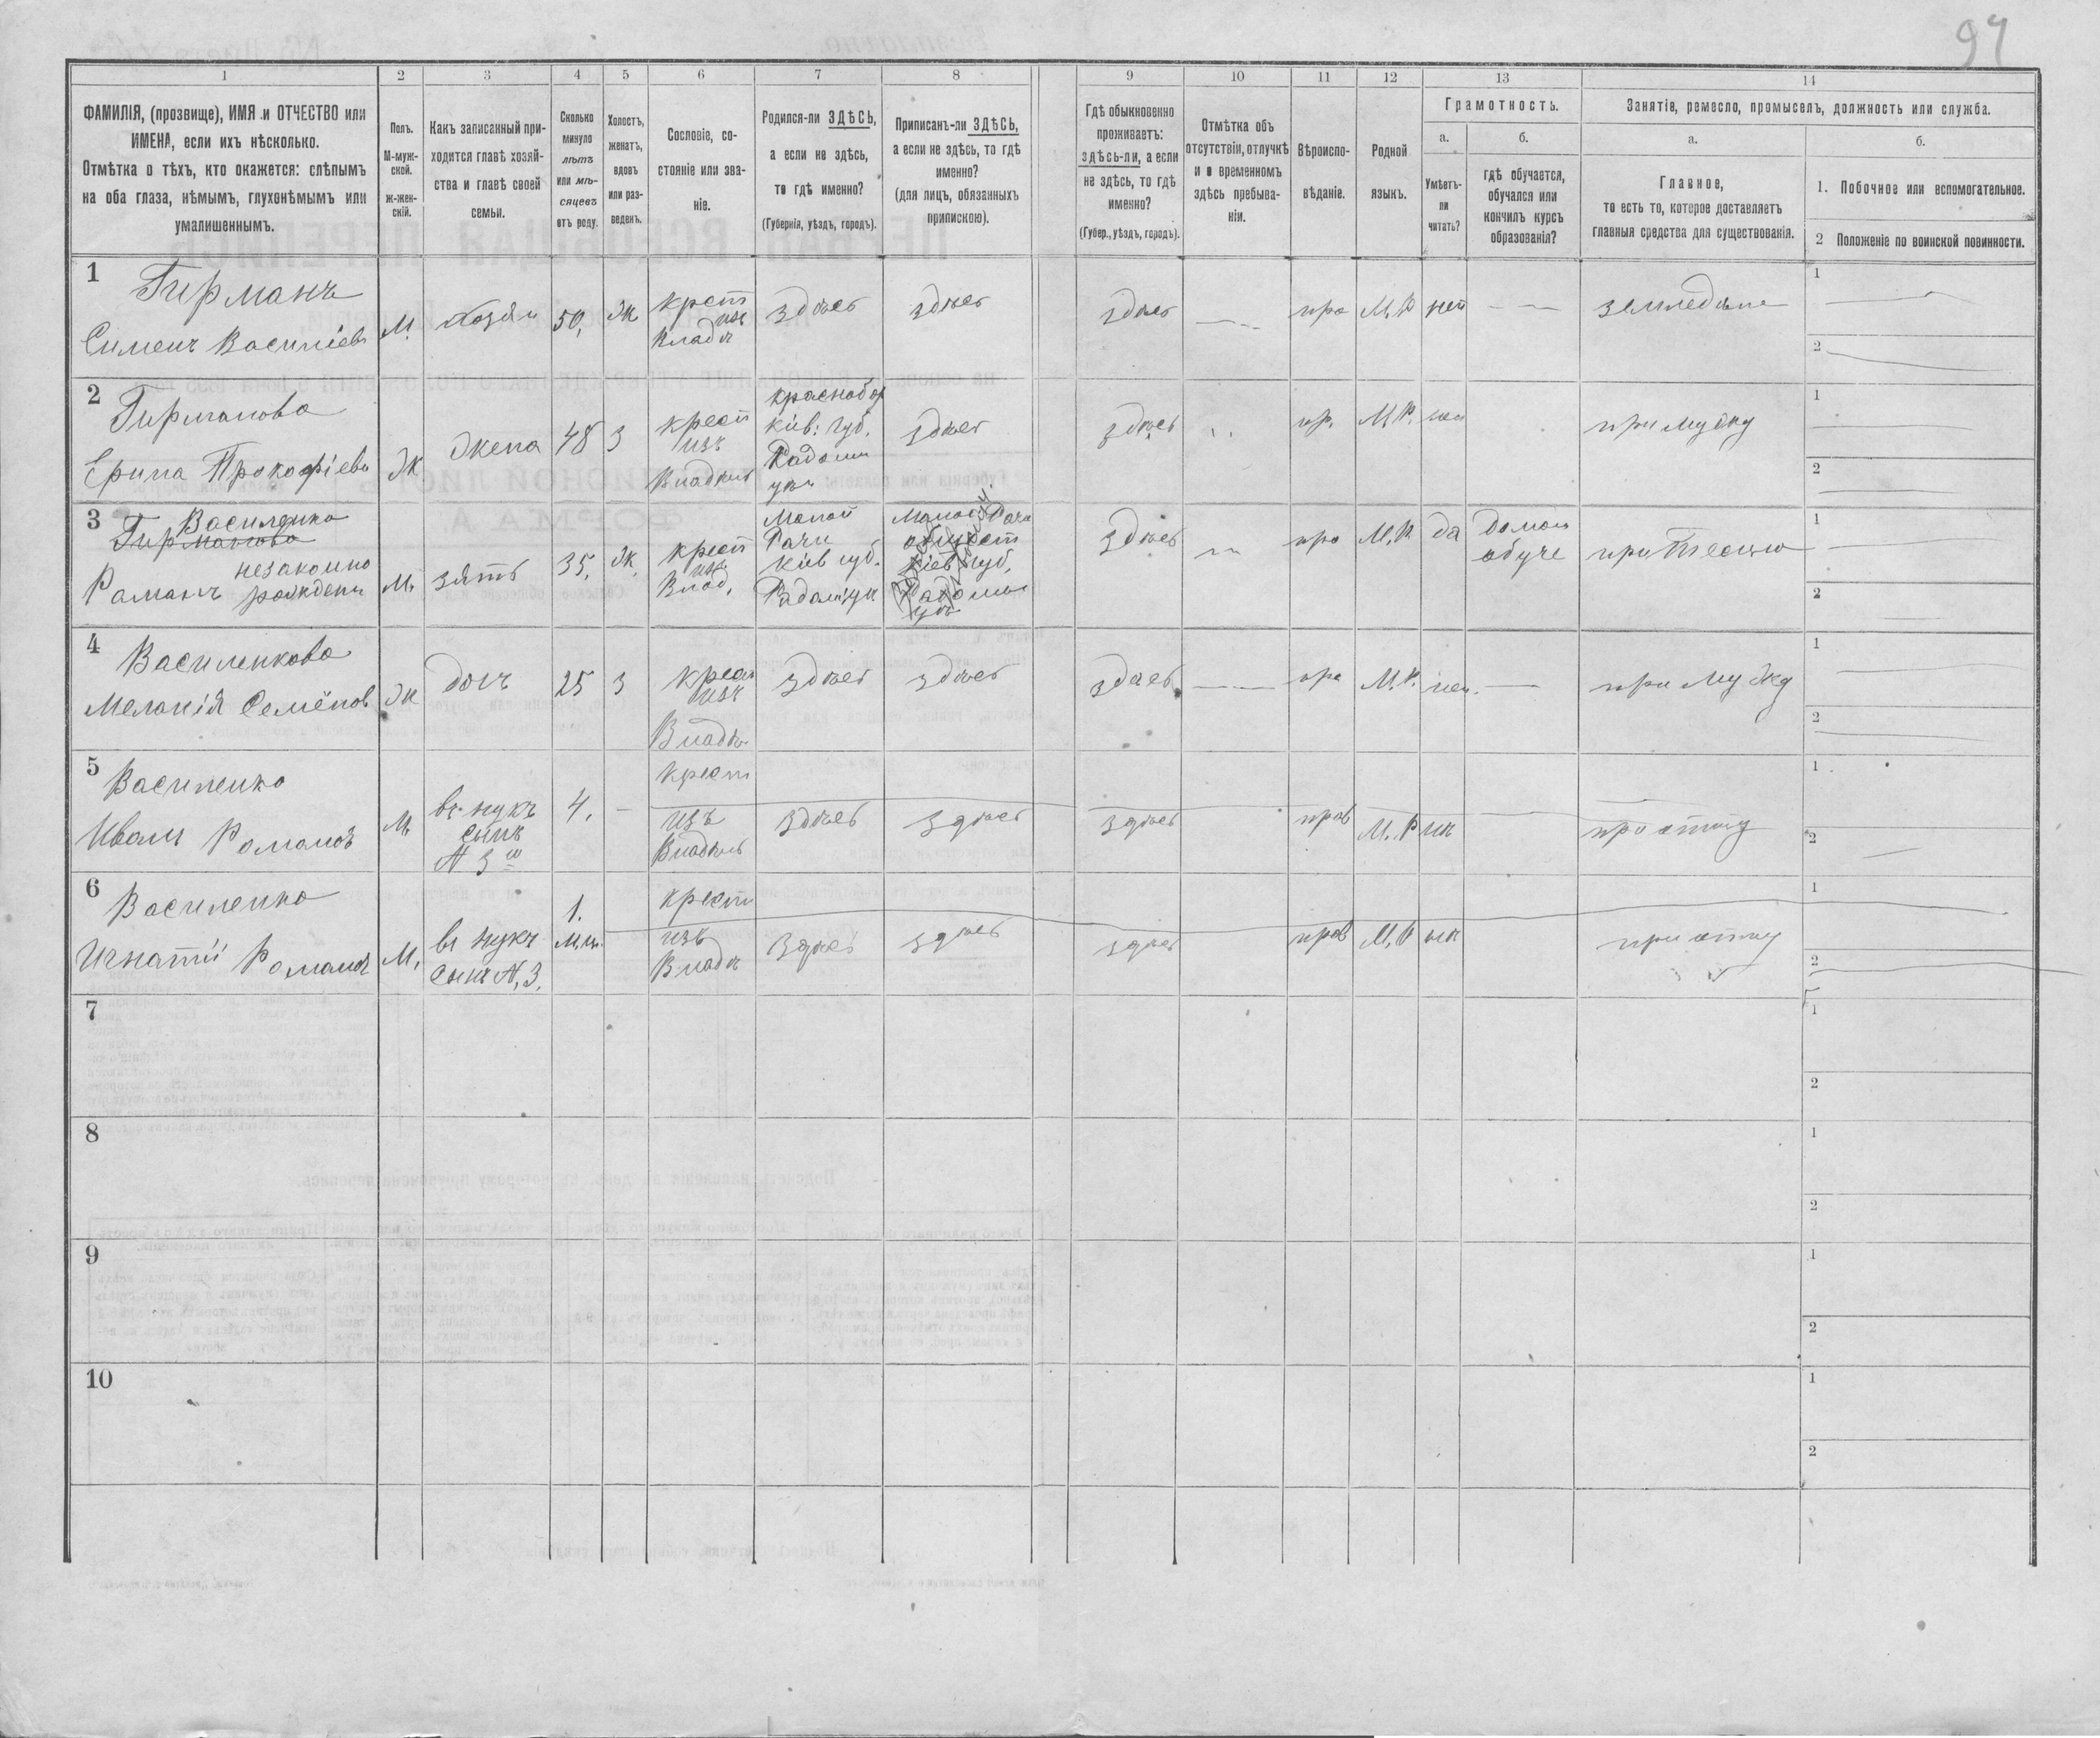 94
1
2
3
4
5
6
7
8
9
10
11
12
13
14
ФАМИЛІЯ, (прозвище), ИМЯ и ОТЧЕСТВО или
ИМЕНА, если ихъ нѣсколько.
Отмѣтка о тѣхъ, кто окажется: слѣпымъ
на оба глаза, нѣмымъ, глухонѣмымъ или
умалишеннымъ.
Полъ.
М-муж-
ской.
ж-жен-
скій.
Какъ записанный при-
ходится главѣ хозяй-
ства и главѣ своей
семьи.
Сколько
минуло
лѣтъ
или мѣ-
сяцевъ
отъ роду.
Холостъ,
женатъ,
вдовъ
или раз-
веденъ.
Сословіе, со-
стояніе или зва-
ніе.
Родился-ли ЗДѢСЬ,
а если не здѣсь,
то гдѣ именно?
(Губернія, уѣздъ, городъ).
Приписанъ-ли ЗДѢСЬ,
а если не здѣсь, то гдѣ
именно?
(для лицъ, обязанныхъ
припискою).
Гдѣ обыкновенно
проживаетъ:
здѣсь-ли, а если
не здѣсь, то гдѣ
именно?
(Губер., уѣздъ, городъ).
Отмѣтка объ
отсутствіи, отлучкѣ
и о временномъ
здѣсь пребыва-
ніи.
Вѣроиспо-
вѣданіе.
Родной
языкъ.
Грамотность.
а.
Умѣетъ-
ли
читать?
б.
гдѣ обучается,
обучался или
кончилъ курсъ
образованія?
Занятіе, ремесло, промыселъ, должность или служба.
а.
Главное,
то есть то, которое доставляетъ
главныя средства для существованія.
б.
1. Побочное или вспомогательное.
2 Положеніе по воинской повинности.
1
Гирманъ
Сименъ Василіевъ
М.
хозяи
50,
Ж
крест
изъ
Владѣ
здѣсь
здѣсь
здѣсь
пра
М.Р
нет
земледѣле
1
2
2
Гирманова
Ерина Прокофіевн
Ж
жена
48
З
крест
изъ
Владѣль
Краснобор
Кіев: губ.
Радомы
уѣз
здѣсь
здѣсь
пр.
М.Р.
нет
при мужу
1
2
3
Василенко
Гирманова
незаконно
Романъ рожденн
М.
зять
35,
Ж.
крест
изъ
Влад.
Малой
Рачи
Кіев губ.
Радом: уѣз
Малой Рачи
общест
Кіев Губ,
Радомы
уѣз
здѣсь
пра
М.Р
да
домаш
обуче
при Тестю
1
2
4
Василенкова
Меланія Семёнов
Ж
доч
25
З
крест
изъ
Владѣ
здѣсь
здѣсь
здѣсь
пра
М.Р.
нет.
при Мужу
1
2
5
Василенко
Иванъ Романов
М.
внукъ
сынъ
№ 3го
4.
крест
изъ
Владѣль
здѣсь
здѣсь
здѣсь
прав
М.Р
при отцу
1
2
6
Василенко
Игнатій Романов
М.
внукъ
сынъ №, 3.
1.
М.ц.
крест
изъ
Владѣ
здѣсь
здѣсь
здѣсь
прав
М.Р
при отцу
1
2
7
1
2
8
1
2
9
1
2
10
1
2